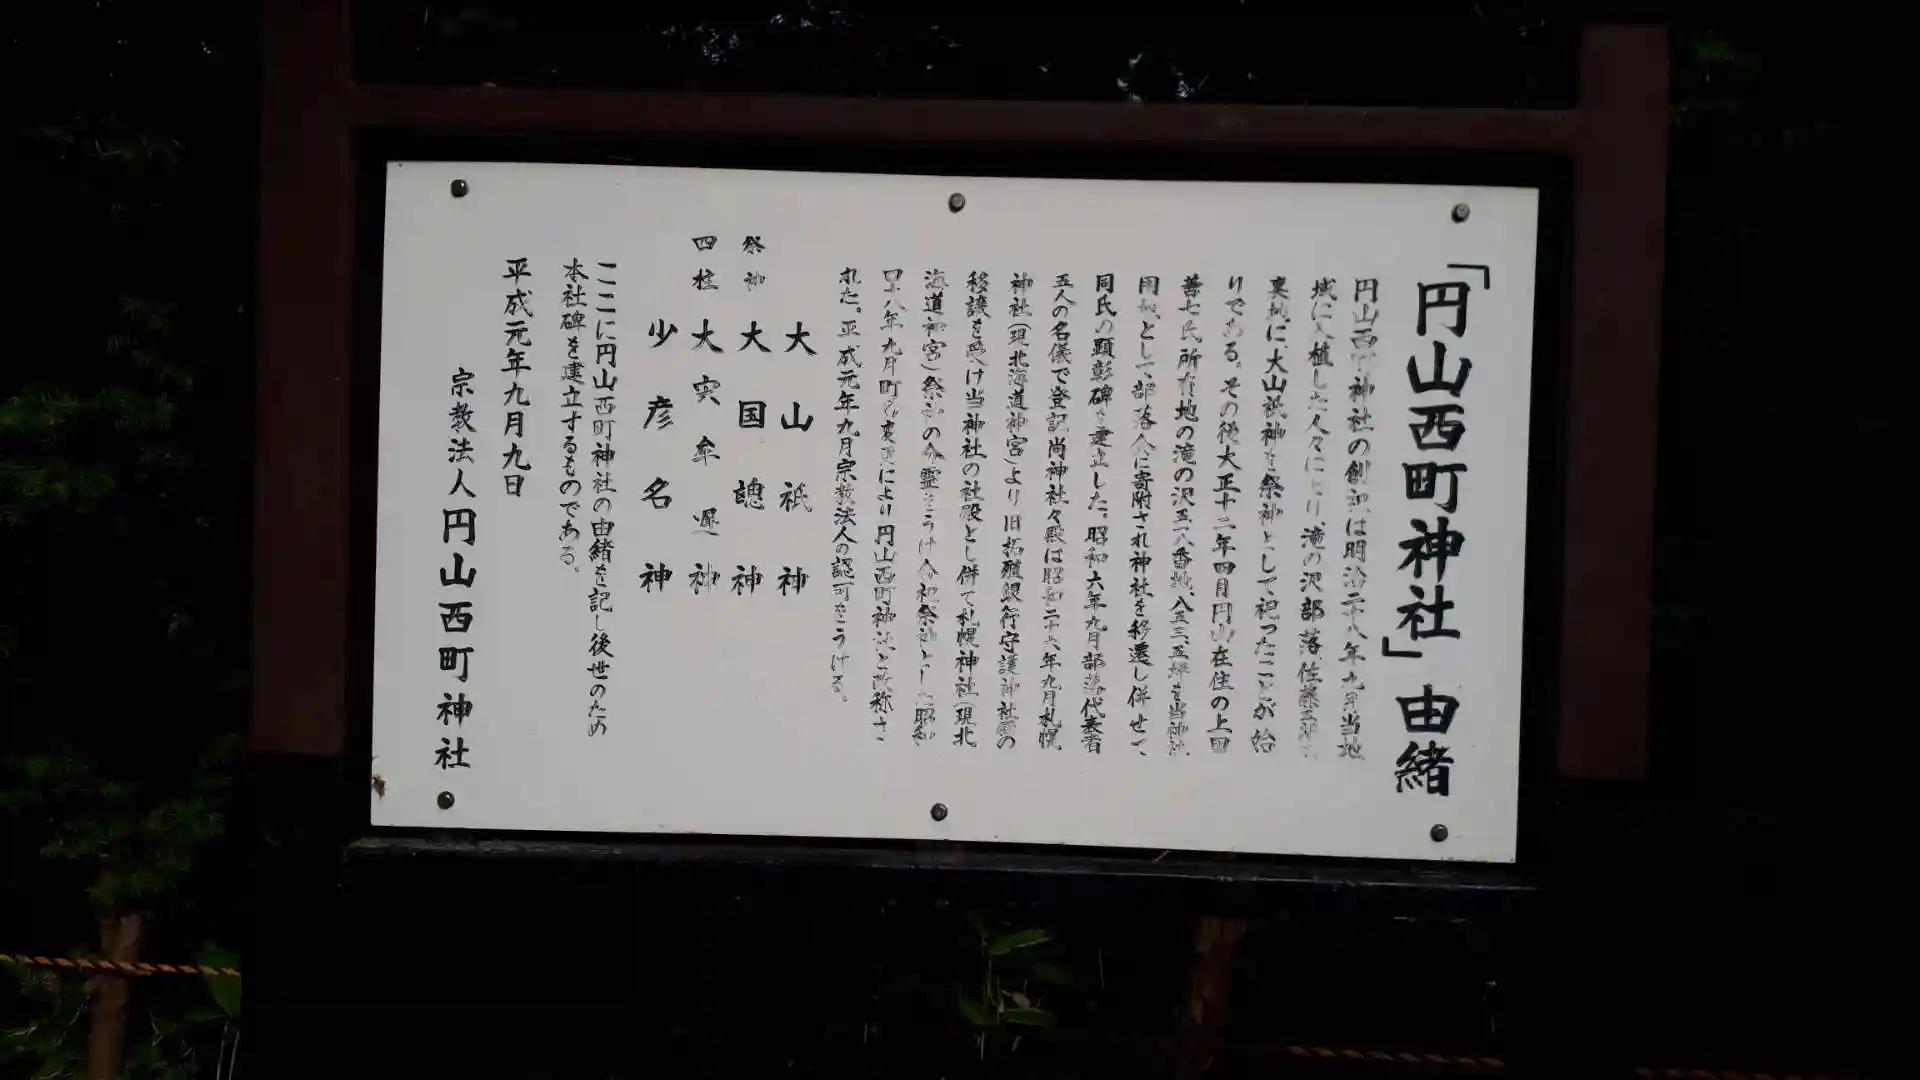 「円山西町神社」由緒
円山西町神社の創祀は明治二十八年九月当地
域に入植した人々により滝の沢部落、佐藤
裏地に、大山祇神を祭神として祀ったことが始
りである。その後大正十二年四月円山在住の上田
善七氏所有地の滝の沢五一八番地、八五三、五坪を当神社
用地、として部落会に寄附され神社を移遷し併せて、
同氏の顕彰碑を建立した。昭和六年九月部落代表者
五人の名儀で登記尚神社々殿は昭和二十六年九月札幌
神社(現北海道神宮)より旧拓殖銀行守護神社殿の
移譲を受け当神社の社殿とし併て札幌神社(現北
海道神宮)祭神の分霊をうけ合祀祭神とした昭和
四十八年九月町名変更により円山西町神社と改称さ
れた。平成元年九月宗教法人の認可をうける。
大山祇神
祭神 大国魂神
四柱 大那牟遅神
少彦名神
ここに円山西町神社の由緒を記し後世のため
本社碑を建立するものである。
平成元年九月九日
宗教法人円山西町神社